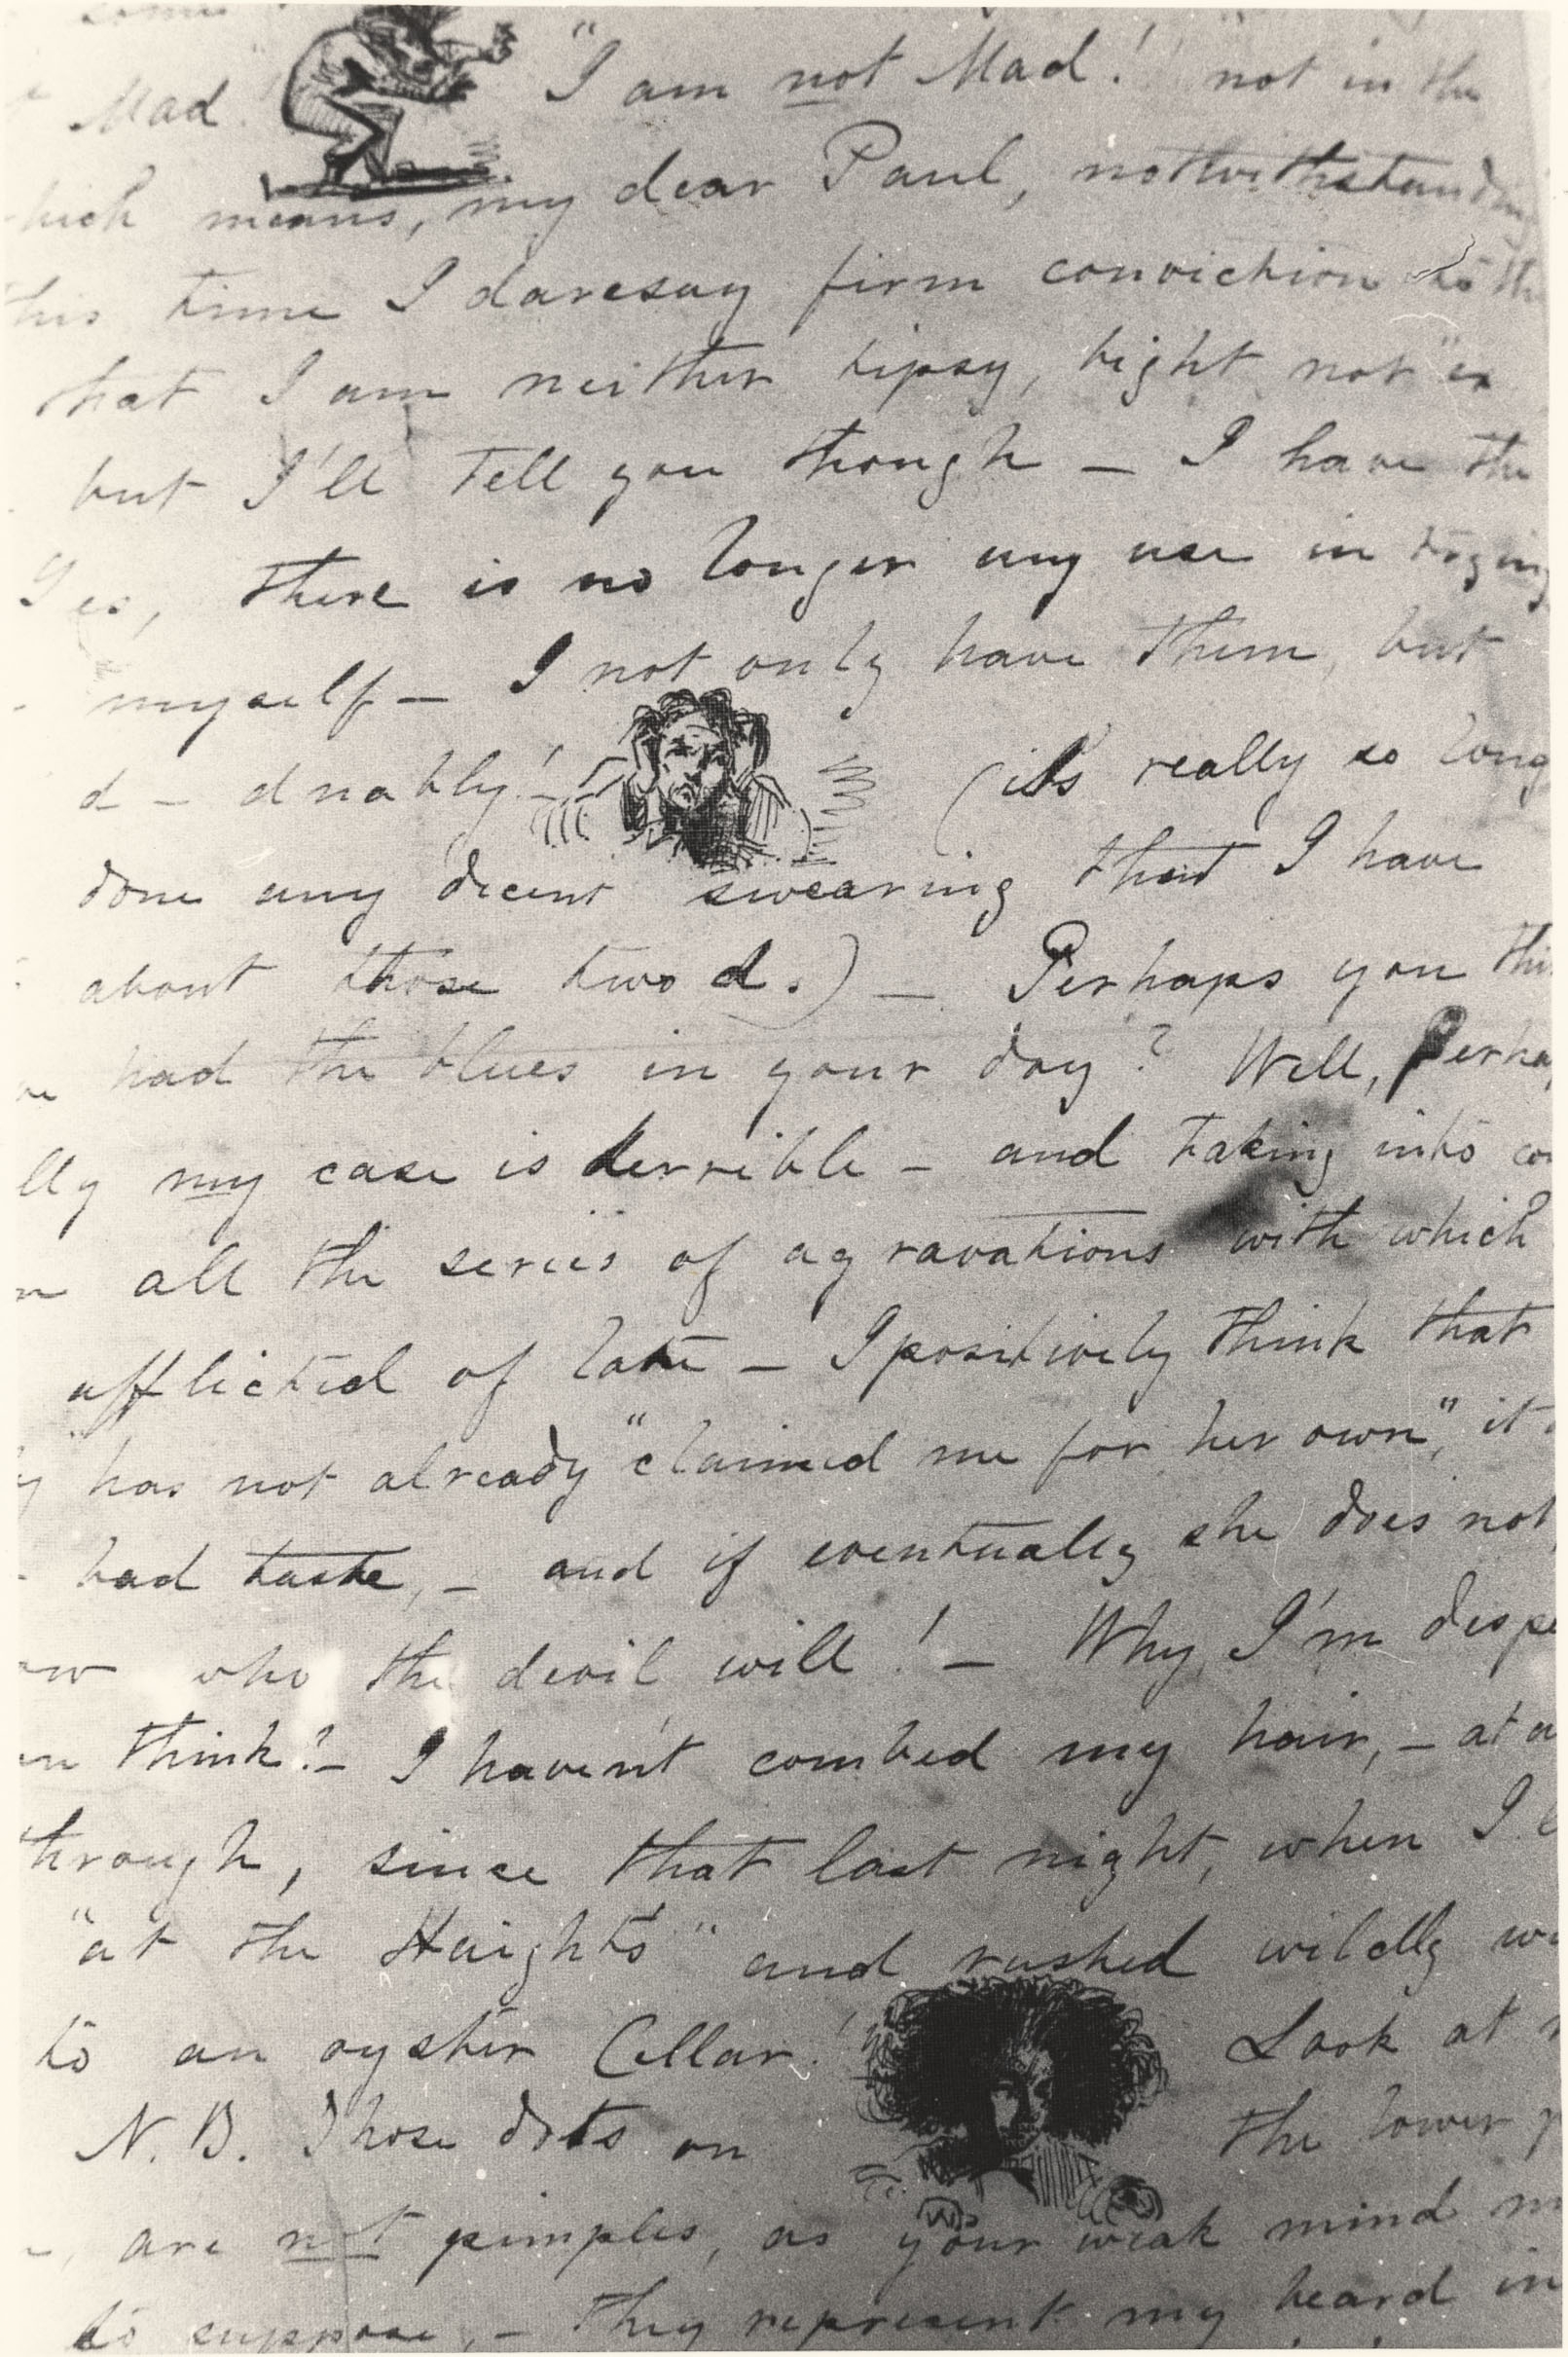 Mad! "I am not Mad! not in the
means, my dear Paul, notwithstanding
this time I daresay firm conviction to the
that I am neither tipsy, tight not
but I'll tell you though — I have the
Yes, there is no longer any use in
myself — I not only have them, but
d — dnably! — (it's really so long
done any decent swearing that I have
about those two d.) — Perhaps you
had the blues in your day? Well, Perha
lly my case is terrible — and taking into co
all the series of agravations with which
afflicted of late — I positively think that
has not already "claimed me for her own", it
bad taste, — and if eventually she does not
who the devil will! — Why, I'm despe
think? — I haven't combed my hair, — at a
through, since that last night, when I
"at the Haights" and rushed wildly
to an oyster Cellar! Look at
N.B. Those dots on the lower
are not pimples, as your weak mind
to suppose, — they represent my beard in